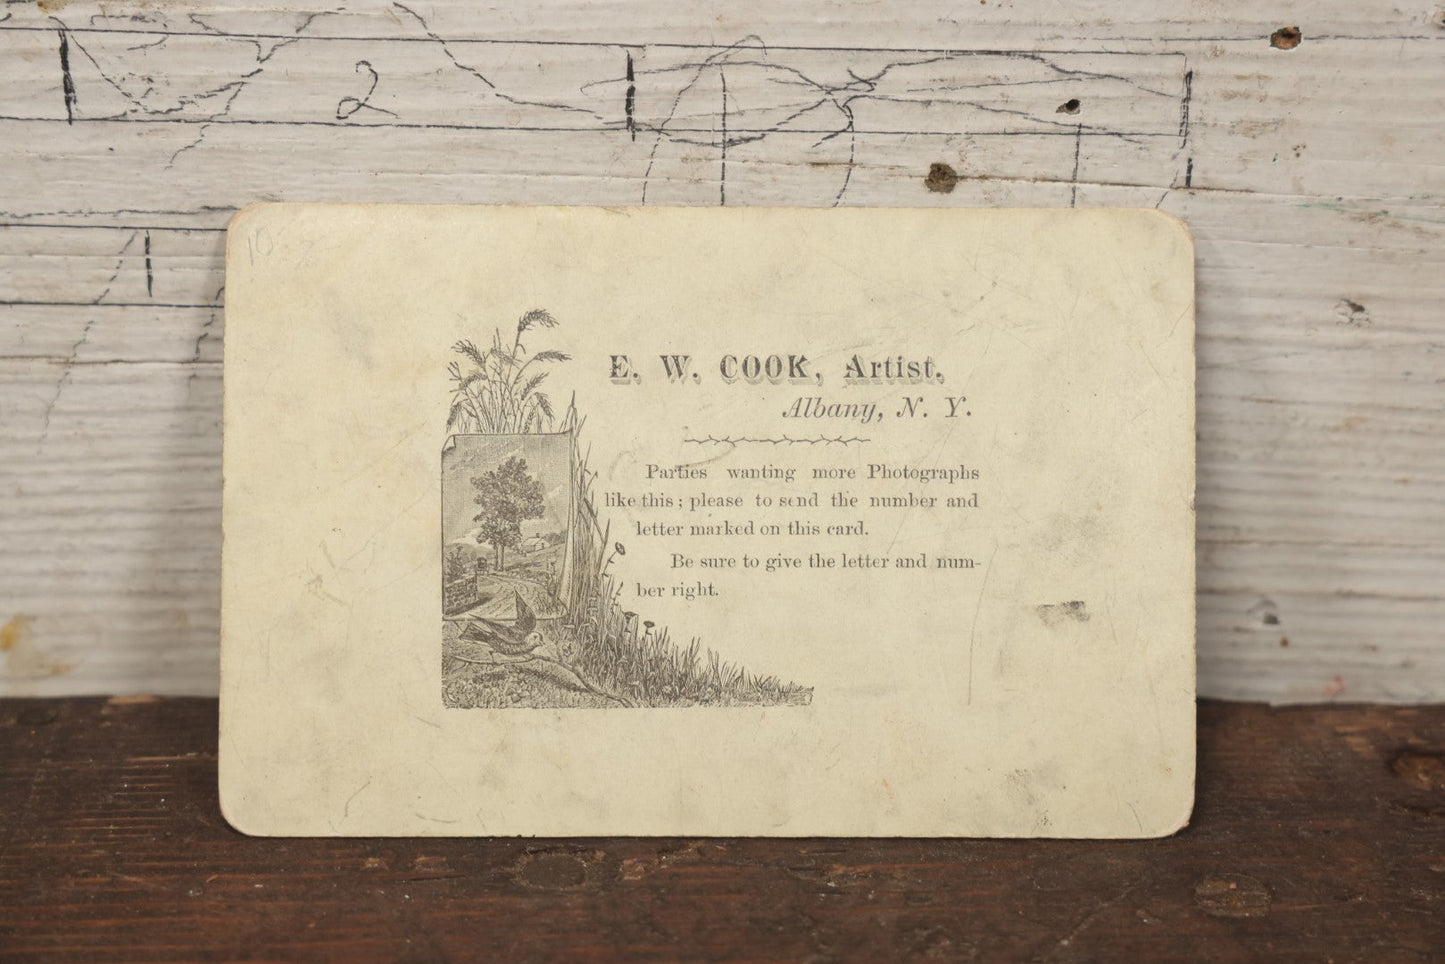 2
E. W. COOK, Artist.
Albany, N. Y.
Parties wanting more Photographs
like this; please to send the number and
letter marked on this card.
Be sure to give the letter and num-
ber right.